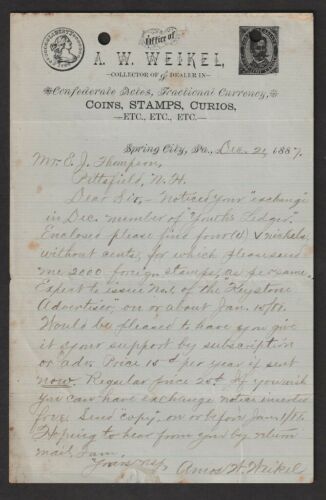 Office of
A. W. WEIKEL,
COLLECTOR OF & DEALER IN
Confederate Notes, Fractional Currency,
COINS, STAMPS, CURIOS,
ETC., ETC., ETC.
Spring City, Pa., Dec. 21, 1887.
Mr. E. J. Thompson,
Pittsfield, N. H.
Dear Sir:- Noticed your "exchange"
in Dec. number of "Youth's Ledger."
Enclosed please find four (4) V nickels,
without cents, for which please send
me 2000 foreign stamps, as per same.
Expect to issue No 1. of the "Keystone
Advertiser", on or about Jan. 15/88.
Would be pleased to have you give
it your support by subscription
or adv. Price 15¢ per year if sent
now. Regular price 25¢. If you wish
you can have exchange notice inserted
free. Send "copy", on or before Jan. 1/88.
Hoping to hear from you by return
mail, I am,
Yours resp.
Amos W. Weikel